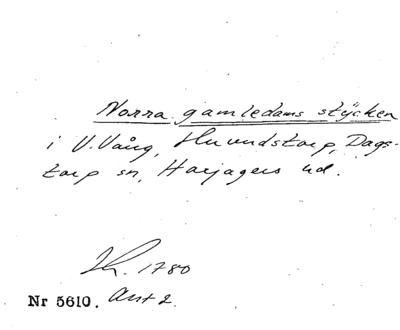 Norra gamledams stycken
i V. Vång, Huvudstorp, Dags-
torp sn, Harjagers hd.
1780
Nr 5610. Akt 2.